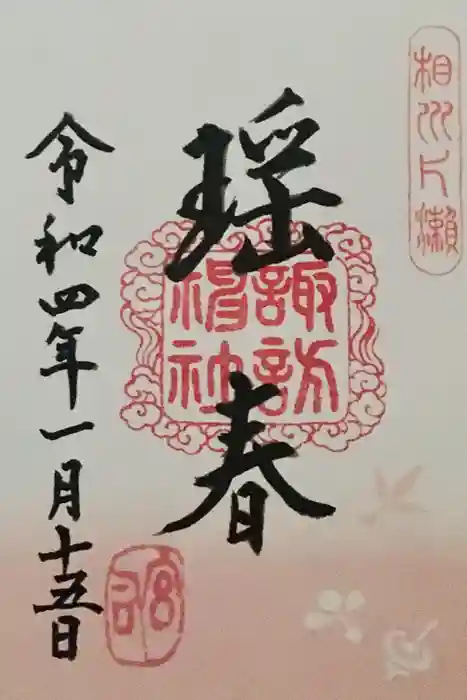 相州片瀬
瑶春
諏訪
神社
令和四年一月十五日
宮司